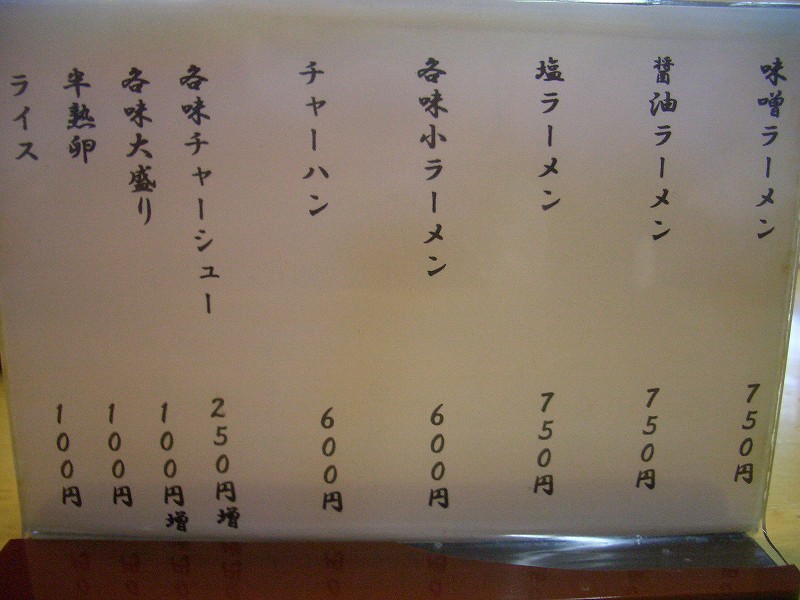 味噌ラーメン 750円
醤油ラーメン 750円
塩ラーメン 750円
各味小ラーメン 600円
チャーハン 600円
各味チャーシュー 250円増
各味大盛り 100円増
半熟卵 100円
ライス 100円